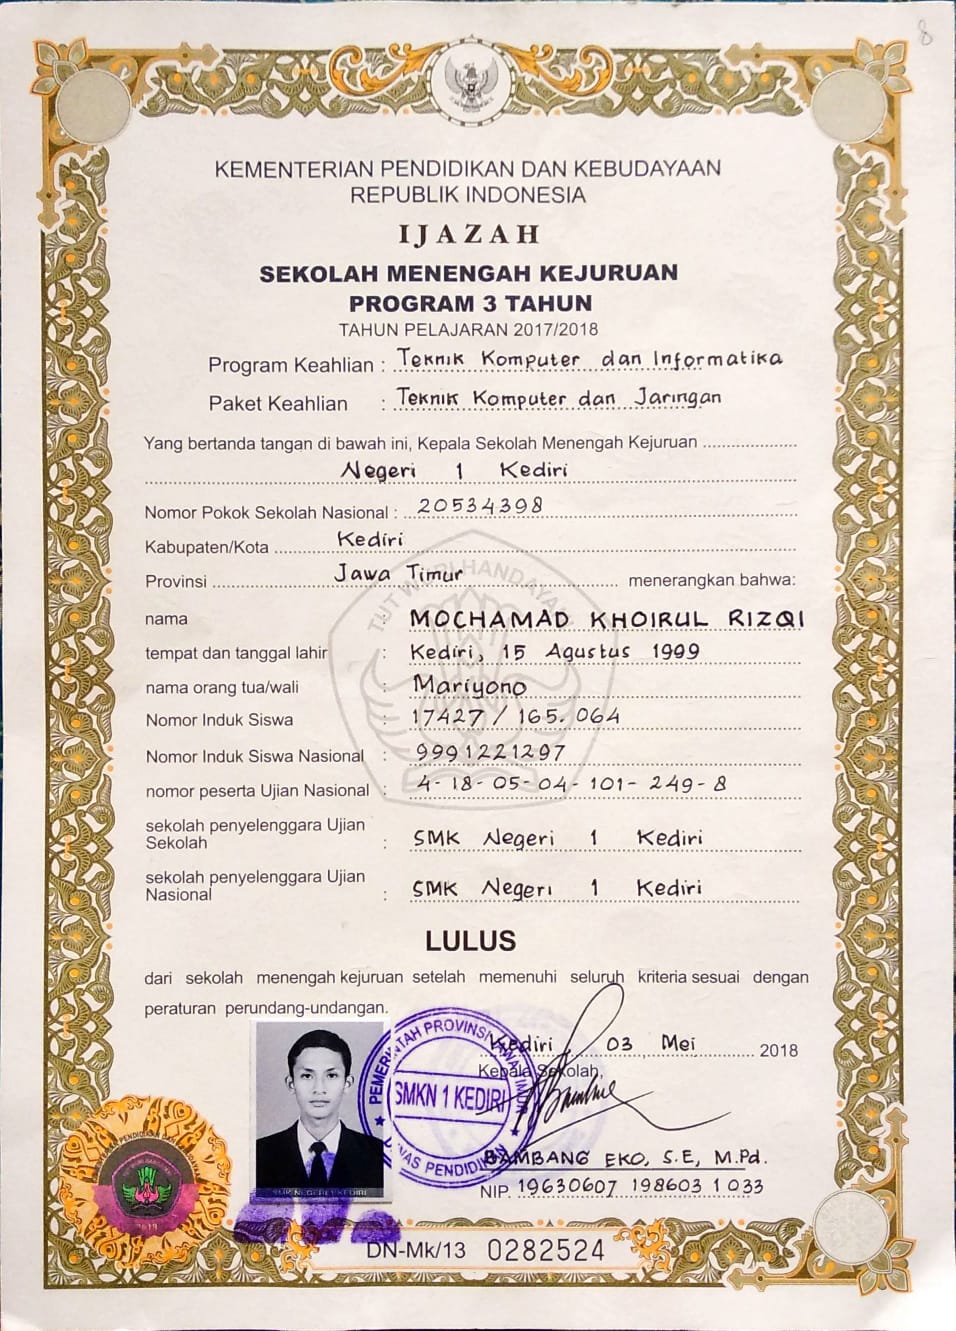 8
KEMENTERIAN PENDIDIKAN DAN KEBUDAYAAN
REPUBLIK INDONESIA
IJAZAH
SEKOLAH MENENGAH KEJURUAN
PROGRAM 3 TAHUN
TAHUN PELAJARAN 2017/2018
Program Keahlian : Teknik Komputer dan Informatika
Paket Keahlian : Teknik Komputer dan Jaringan
Yang bertanda tangan di bawah ini, Kepala Sekolah Menengah Kejuruan
Negeri 1 Kediri
Nomor Pokok Sekolah Nasional : 20534398
Kabupaten/Kota Kediri
Provinsi Jawa Timur menerangkan bahwa:
TUT WURI HANDAYANI
nama MOCHAMAD KHOIRUL RIZQI
tempat dan tanggal lahir : Kediri, 15 Agustus 1999
nama orang tua/wali : Mariyono
Nomor Induk Siswa : 17427 / 165.064
Nomor Induk Siswa Nasional : 9991221297
nomor peserta Ujian Nasional : 4-18-05-04-101-249-8
sekolah penyelenggara Ujian
Sekolah : SMK Negeri 1 Kediri
sekolah penyelenggara Ujian
Nasional : SMK Negeri 1 Kediri
LULUS
dari sekolah menengah kejuruan setelah memenuhi seluruh kriteria sesuai dengan
peraturan perundang-undangan.
Kediri, 03 Mei 2018
Kepala Sekolah,
PEMERINTAH PROVINSI JAWA TIMUR
SMKN 1 KEDIRI
DINAS PENDIDIKAN
BAMBANG EKO, S.E, M.Pd.
NIP. 19630607 198603 1 033
SMK NEGERI 1 KEDIRI
DN-Mk/13 0282524